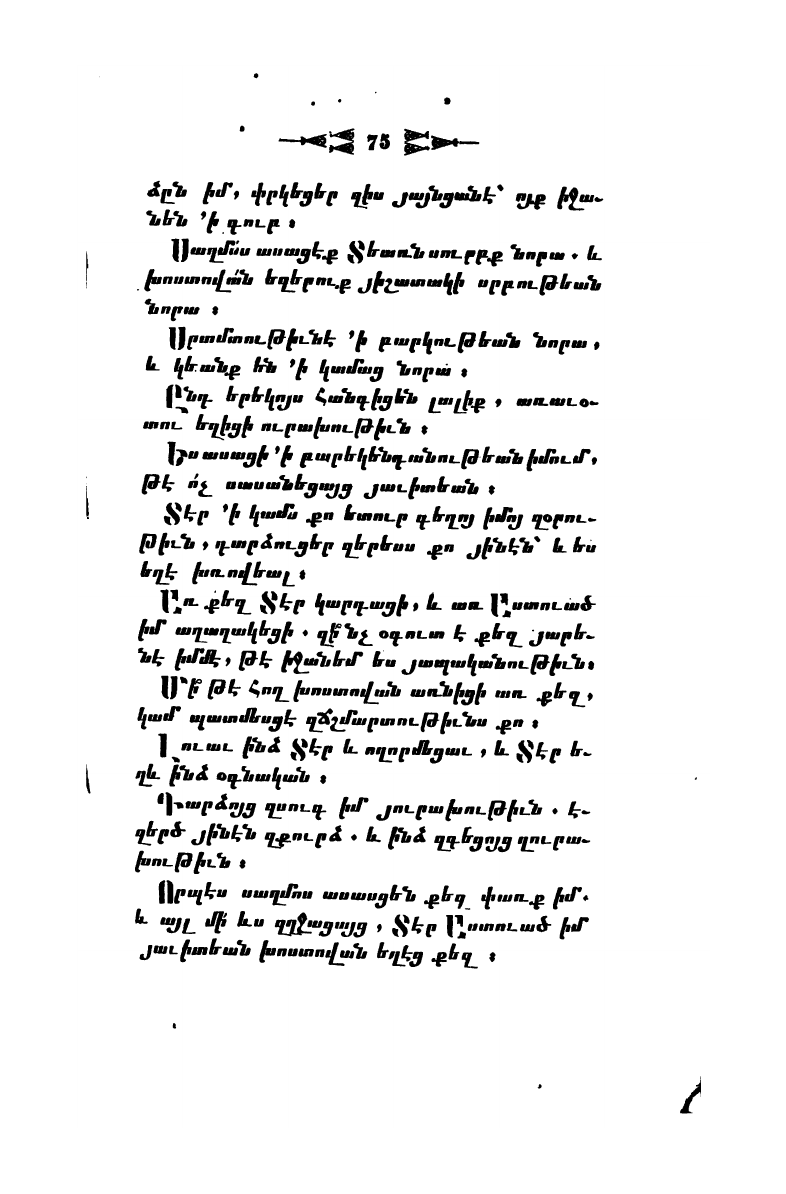 75
ձըն իմ, փրկեցեր զիս յայնցանէ՝ ոյք իջա-
նեն ՚ի գուբ ։
Սաղմո՛ս ասացէք Տեառն սուրբք նորա . և
խոստովա՛ն եղերուք յիշատակի սրբութեան
նորա ։
Սրտմտութիւնէ ՚ի բարկութեան նորա,
և կեանք են ՚ի կամաց նորա ։
Ընդ երեկոյս հանգիցեն լալիք , առաւօ-
տու եղիցի ուրախութիւն ։
Ես ասացի ՚ի բարեկենդանութեան իմում,
թէ ո՛չ սասանեցայց յաւիտեան ։
Տէր ՚ի կամս քո ետուր գեղոյ իմոյ զօրու-
թիւն , դարձուցեր զերեսս քո յինէն՝ և ես
եղէ խռովեալ ։
Առ քեզ Տէր կարդացի, և առ Աստուած
իմ աղաղակեցի . զի՞նչ օգուտ է քեզ յարե-
նէ իմմէ, թէ իջանեմ ես յապականութիւն։
Մի՞ թէ հող խոստովան առնիցի առ քեզ,
կամ պատմեսցէ զճշմարտութիւնս քո ։
Լուաւ ինձ Տէր և ողորմեցաւ , և Տէր ե-
ղև ինձ օգնական ։
Դարձոյց զսուգ իմ յուրախութիւն . է-
զերծ յինէն զքուրձ . և ինձ զգեցոյց զուրա-
խութիւն ։
Որպէս սաղմոս ասասցեն քեզ փառք իմ.
և այլ մի՛ ևս զղջացայց , Տէր Աստուած իմ
յաւիտեան խոստովան եղէց քեզ ։